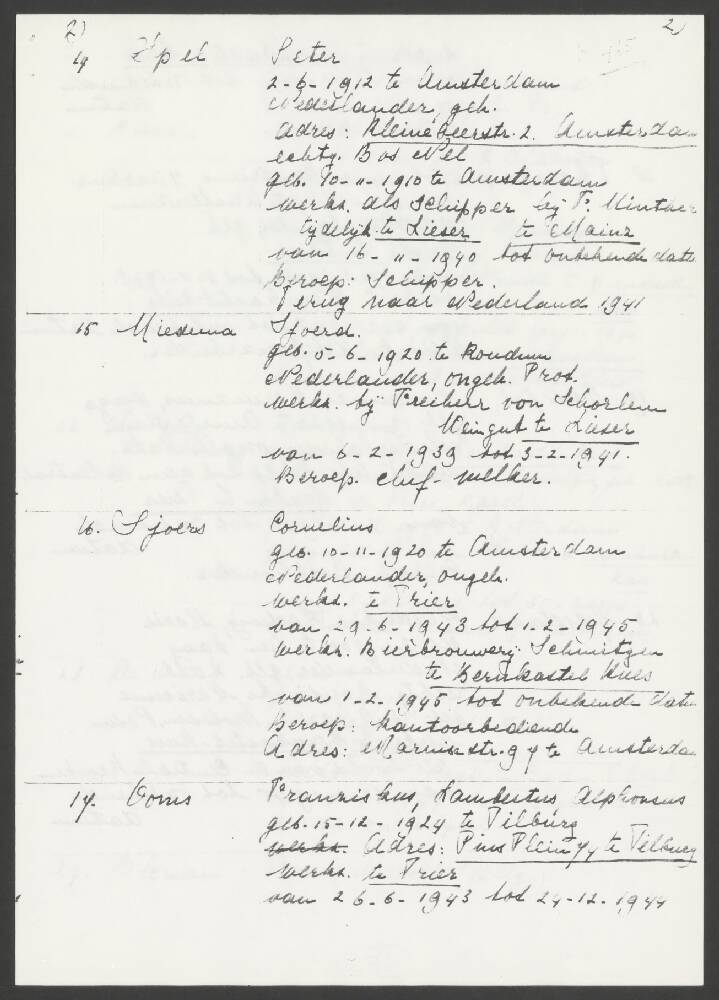 2) 2)
14 Peter
2-6-1912 te Amsterdam
Nederlander, geh.
Adres: Kleine Geerstr. 2. Amsterda
echtg. Bos Nel
geb. 10-11-1910 te Amsterdam
werkz. als Schipper bij P.
tijdelijk te Lieser te Mainz
van 16-11-1940 tot onbekende date
Beroep: Schipper.
Terug naar Nederland 1941
15 Miedema Sjoerd.
geb. 5-6-1920 te Roudum
Nederlander, ongeh. Prot.
werkz. bij Freiherr von Schorlem
Weingut te Lieser
van 6-2-1939 tot 3-2-1941.
Beroep. chef-melker.
16. Sjoers Cornelius
geb. 10-11-1920 te Amsterdam
Nederlander, ongeh.
werkz. te Trier
van 29-6-1943 tot 1-2-1945.
werkz. Bierbrouwerij Schmitgen
te Bernkastel Kues
van 1-2-1945 tot onbekende date
Beroep: kantoorbediende
Adres: Marnixstr. 97 te Amsterda
17. Ooms Franziskus, Lambertus Alphonsus
geb. 15-12-1924 te Tilburg
werkz. Adres: Pius Plein 77 te Tilburg
werkz. te Trier
van 26-6-1943 tot 24-12-1944